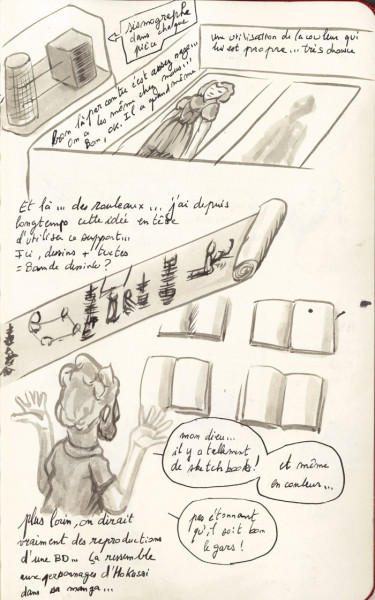 sismographe
dans chaque
pièce
une utilisation de la couleur qui
lui est propre... très douce
Bon là par contre c'est assez
On a les même chez nous...
Bon, ok. Il a quand même
Et là... des rouleaux... j'ai depuis
longtemps cette idée en tête
d'utiliser ce support...
Ici, dessins + textes
= Bande dessinée ?
mon dieu...
il y a tellement
de sketchbooks!
et même
en couleur...
pas étonnant
qu'il soit bon
le gars!
plus loin, on dirait
vraiment des reproductions
d'une BD... ça ressemble
aux personnages d'Hokusai
dans sa manga...